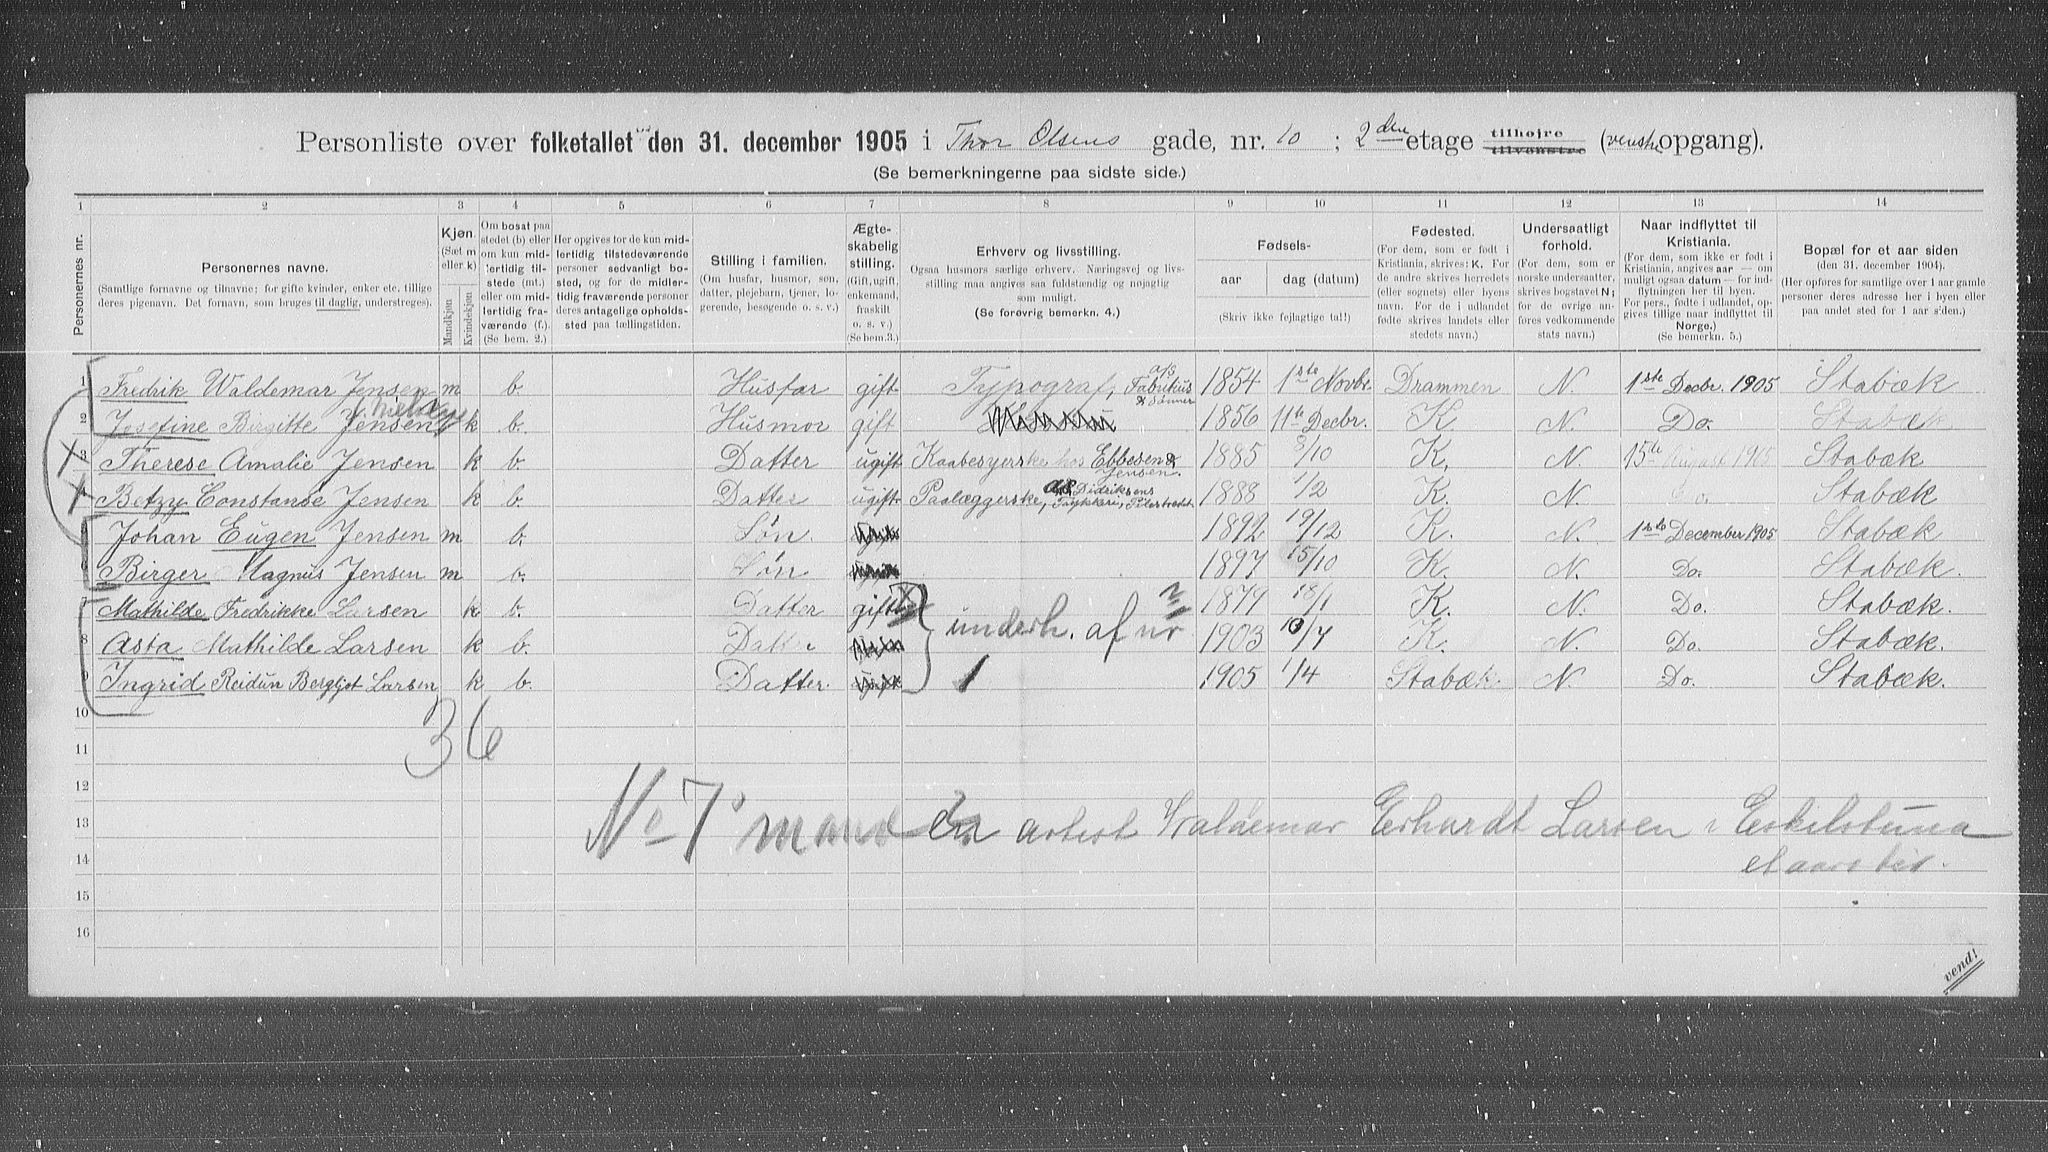 Personliste over folketallet den 31. december 1905 i Thor Olsens gade, nr. 10 ; 2 den etage tilhøjre tilvenstre (venstre opgang).
(Se bemerkningerne paa sidste side.)
1 2 3 4 5 6 7 8 9 10 11 12 13 14
Personernes nr.
Personernes navne.
(Samtlige fornavne og tilnavne; for gifte kvinder, enker etc. tillige deres pigenavn. Det fornavn, som bruges til daglig, understreges).
Kjøn. (Sæt m eller k) Mandkjøn Kvindekjøn
Om bosat paa stedet (b) eller om kun midlertidig tilstede (mt.) eller om midlertidig fraværende (f.) (Se bem. 2.)
Her opgives for de kun midlertidig tilstedeværende personer sedvanligt bosted, og for de midlertidig fraværende personer deres antagelige opholdssted paa tællingstiden.
Stilling i familien. (Om husfar, husmor, søn, datter, plejebarn, tjener, logerende, besøgende o. s. v.)
Ægteskabelig stilling. (Gift, ugift, enkemand, fraskilt o. s. v.) (Se bem. 3.)
Erhverv og livsstilling. Ogsaa husmors særlige erhverv. Næringsvej og livsstilling maa angives saa fuldstændig og nøjagtig som muligt. (Se forøvrig bemerkn. 4.)
Fødsels- aar dag (datum) (Skriv ikke fejlagtige tal!)
Fødested. (For dem, som er født i Kristiania, skrives: K. For de andre skrives herredets (eller sognets) eller byens navn. For de i udlandet fødte skrives landets eller stedets navn).
Undersaatligt forhold. (For dem, som er norske undersaatter, skrives bogstavet N; for de øvrige anføres vedkommende stats navn.)
Naar indflyttet til Kristiania. (For dem, som ikke er født i Kristiania, angives aar — om muligt ogsaa datum — for indflytningen her til byen. For pers., fødte i udlandet, opgives tillige naar indflyttet til Norge.) (Se bemerkn. 5.)
Bopæl for et aar siden (den 31. december 1904). (Her opføres for samtlige over 1 aar gamle personer deres adresse her i byen eller paa andet sted for 1 aar siden.)
1 Fredrik Waldemar Jensen m b. Husfar gift Typograf, a/s Fabritius & Sønner 1854 1ste Novbr. Drammen N. 1ste Decbr. 1905 Stabæk
2 Josefine Birgitte Jensen k b. Husmor gift 1856 11te Decbr. K. N. Do. Stabæk
3 Therese Amalie Jensen k b. Datter ugift Kaabesyerske hos Ebbesen & Jensen. 1885 8/10 K. N. 15te August 1905 Stabæk
4 Betzy Constanse Jensen k b. Datter ugift Paalæggerske, A/S Didriksens Trykkeri, Pilestrædet. 1888 1/2 K. N. Do. Stabæk
5 Johan Eugen Jensen m b. Søn 1892 19/12 K. N. 1ste December 1905 Stabæk
6 Birger Magnus Jensen m b. Søn 1897 15/10 K. N. Do. Stabæk.
7 Mathilde Fredrikke Larsen k b. Datter gift X 1879 18/1 K. N. Do. Stabæk.
8 Asta Mathilde Larsen k b. Datter underh. af nr 1903 10/7 K. N. Do. Stabæk.
9 Ingrid Reidun Bergljot Larsen k b. Datter. 1 1905 1/4 Stabæk. N. Do. Stabæk.
10
36
11
12
13 No 7 mand er artist Waldemar Erhardt Larsen i Eskilstuna
14
15
16
vend!